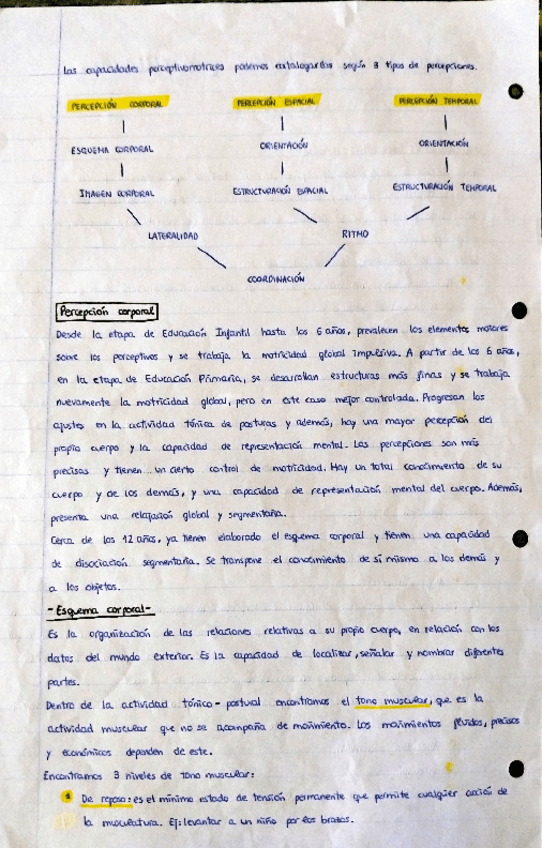 Las capacidades perceptivomotrices podemos catalogarlas según 3 tipos de percepciones.
PERCEPCIÓN CORPORAL PERCEPCIÓN ESPACIAL PERCEPCIÓN TEMPORAL
ESQUEMA CORPORAL ORIENTACIÓN ORIENTACIÓN
IMAGEN CORPORAL ESTRUCTURACIÓN ESPACIAL ESTRUCTURACIÓN TEMPORAL
LATERALIDAD RITMO
COORDINACIÓN
Percepción corporal
Desde la etapa de Educación Infantil hasta los 6 años, prevalecen los elementos motores
sobre los perceptivos y se trabaja la motricidad global impulsiva. A partir de los 6 años,
en la etapa de Educación Primaria, se desarrollan estructuras más finas y se trabaja
nuevamente la motricidad global, pero en este caso mejor controlada. Progresan los
ajustes en la actividad tónica de posturas y además, hay una mayor percepción del
propio cuerpo y la capacidad de representación mental. Las percepciones son más
precisas y tienen un cierto control de motricidad. Hay un total conocimiento de su
cuerpo y de los demás, y una capacidad de representación mental del cuerpo. Además,
presenta una relajación global y segmentaria.
Cerca de los 12 años, ya tienen elaborado el esquema corporal y tienen una capacidad
de disociación segmentaria. Se transpone el conocimiento de sí mismo a los demás y
a los objetos.
- Esquema corporal -
Es la organización de las relaciones relativas a su propio cuerpo, en relación con los
datos del mundo exterior. Es la capacidad de localizar, señalar y nombrar diferentes
partes.
Dentro de la actividad tónico - postural encontramos el tono muscular, que es la
actividad muscular que no se acompaña de movimiento. Los movimientos fluidos, precisos
y económicos dependen de este.
Encontramos 3 niveles de tono muscular:
De reposo: es el mínimo estado de tensión permanente que permite cualquier acción de
la musculatura. Ej: levantar a un niño por los brazos.